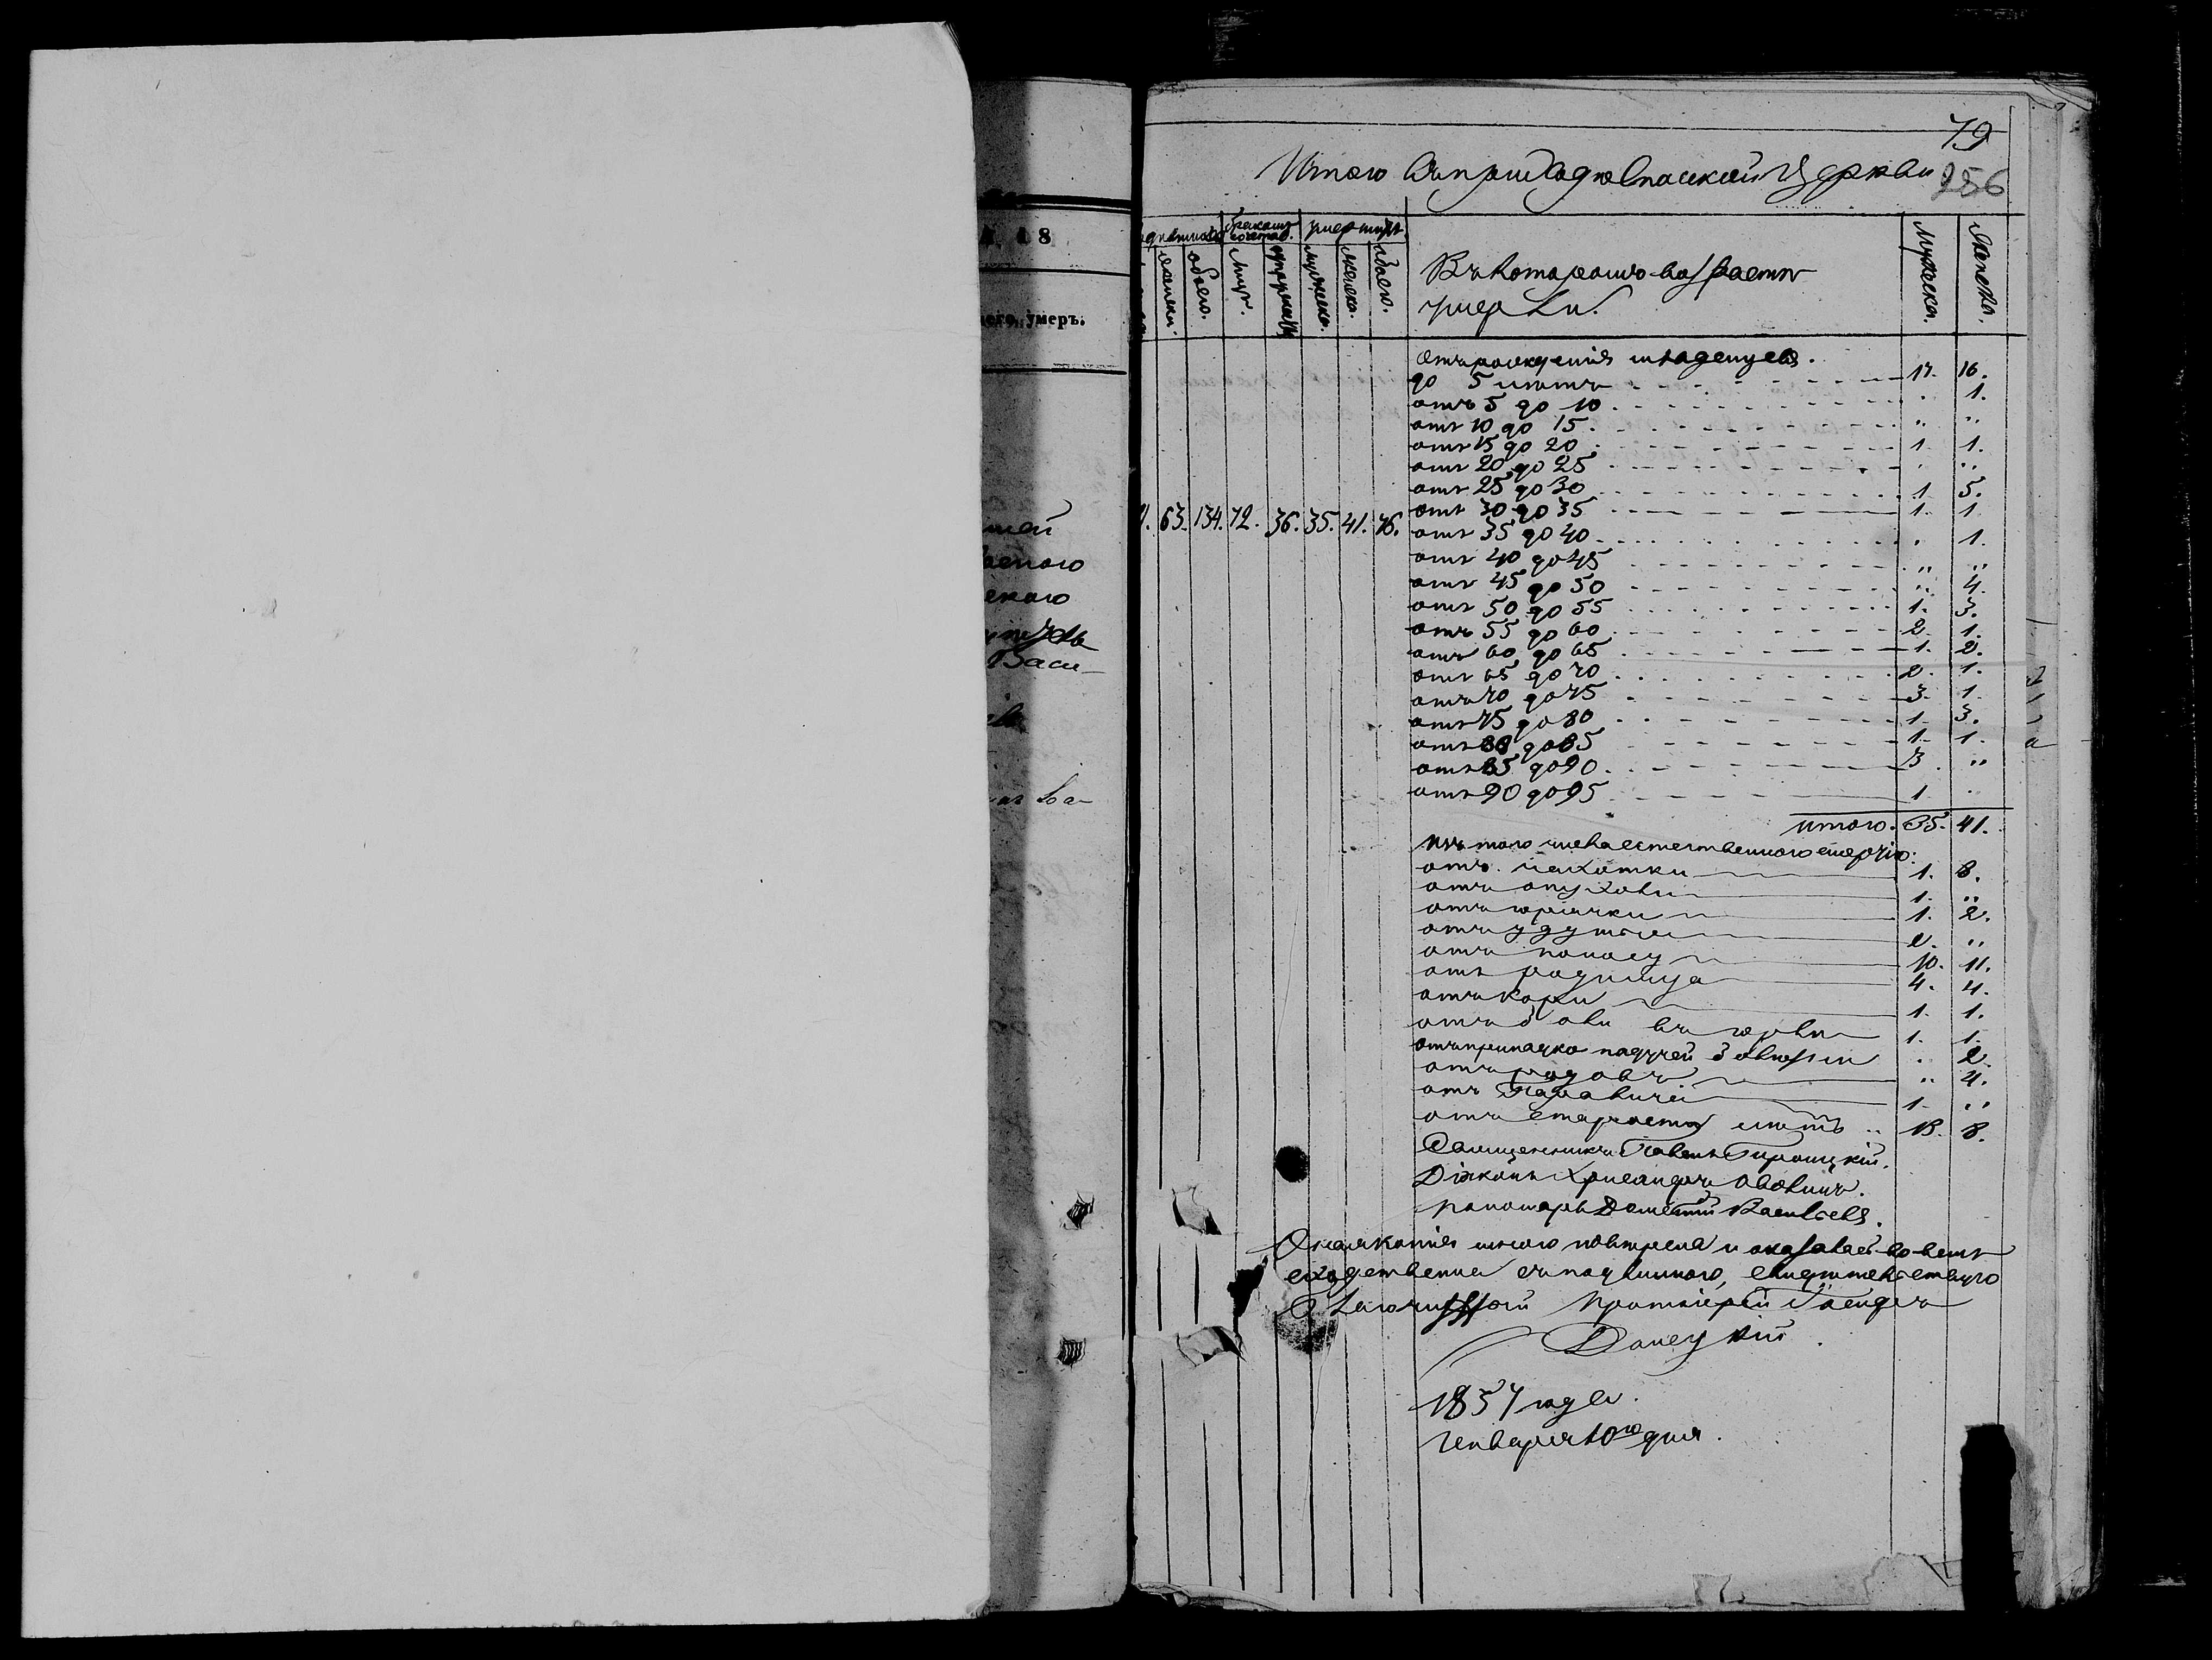 18
умеръ.
Васи-
79
256
Итого въ приходѣ Спаской Церкви
бракомъ сочетав. умершихъ
женска. обоего. лицъ. мужеска. женска. обоего.
Въ которомъ возрастѣ умерли.
Мужеска. Женска.
отъ рожденія младенцевъ.
до 5 лѣтъ 17. 16.
отъ 5 до 10 . 1.
отъ 10 до 15 „ „
отъ 15 до 20 1. 1.
отъ 20 до 25 „ „
отъ 25 до 30 1. 5.
63. 134. 72. 36. 35. 41. 76. отъ 30 до 35 1. 1
отъ 35 до 40 . 1.
отъ 40 до 45 „ „
отъ 45 до 50 „ 4.
отъ 50 до 55 1. 3.
отъ 55 до 60 2. 1.
отъ 60 до 65 1. 2.
отъ 65 до 70 2. 1.
отъ 70 до 75 3. 1.
отъ 75 до 80 1. 3.
отъ 80 до 85 1. 1.
отъ 85 до 90 3 „
отъ 90 до 95 1 „
итого. 35. 41.
Изъ того числа естественною смертію:
отъ чахотки 1. 8.
отъ опухоли 1. „
отъ горячки 1. 2.
отъ удушья 2. „
отъ поносу 10. 11.
отъ родимца 4. 4.
отъ кори 1. 1.
отъ боли въ горлѣ 1. 1.
отъ припадка падучей болѣзни . 2.
отъ родовъ „ 4.
отъ 1. „
отъ старости лѣтъ 13. 8.
Священникъ Павелъ
Діяконъ Хрисанфъ
Пономарь Васильевъ.
Оная копія мною повѣрена и оказалась во всемъ
сходственна съ подлинною, свидѣтельствую
Благочинный Протоіерей
Донецкій.
1857 года.
Генваря 10го дня.